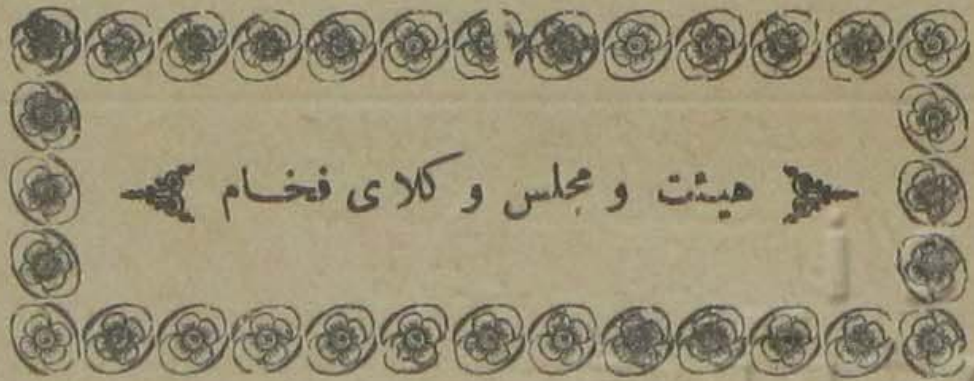 هیئت و مجلس وكلای فخام